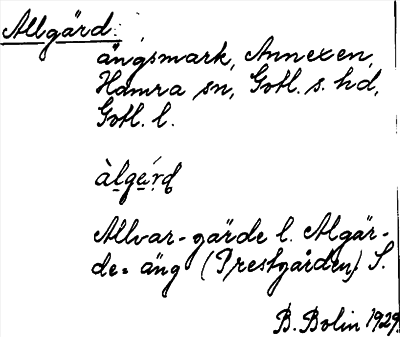 Allgärd
ängsmark, Annexen,
Hamra sn, Gotl. s. hd,
Gotl. l.
àlgeí̯rd
Allvar-gärde l. Algär-
de= äng (Prestgården) S.
B. Bolin 1929.